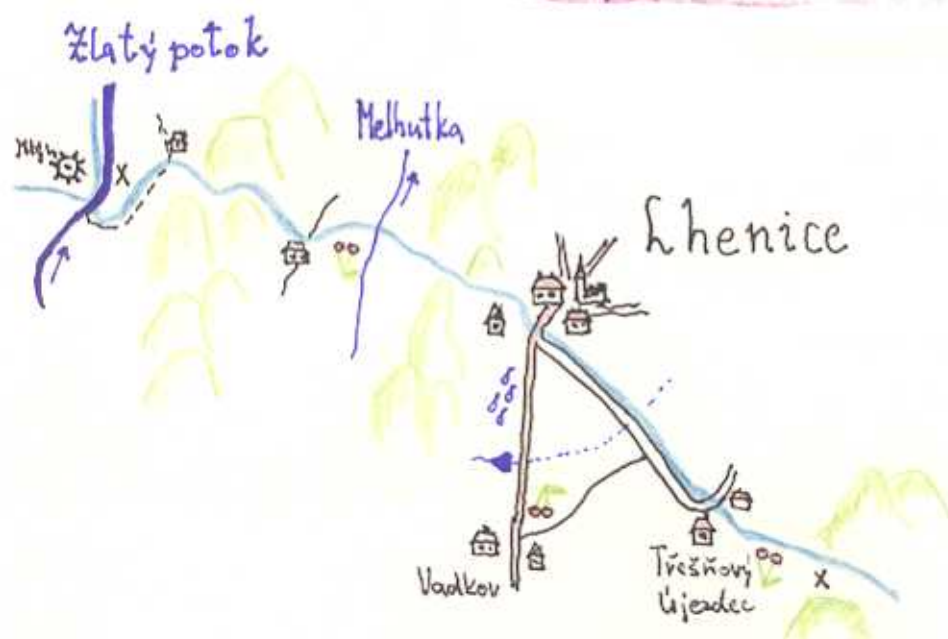 Zlatý potok
Mlýn
Melhutka
Lhenice
Vadkov
Třešňový
Újezdec